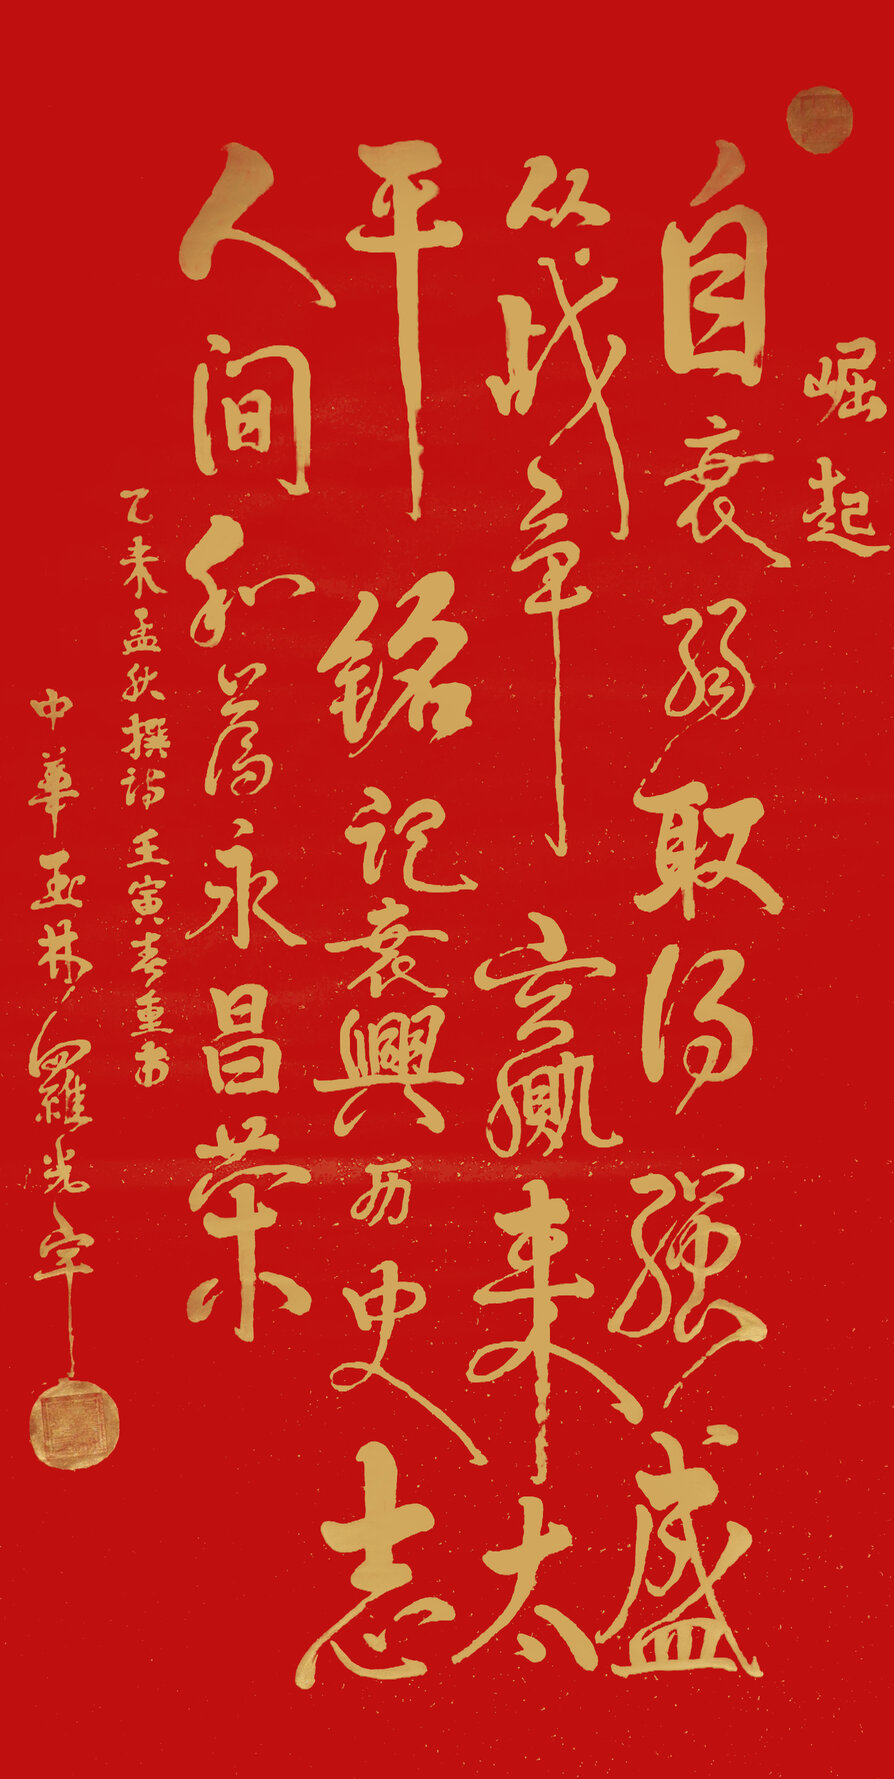 崛起
自衰弱取得强盛
从战争赢来太
平铭记衰興历史志
人间和永昌荣
乙未孟秋撰诗壬寅春重书
中華玉林羅光宇